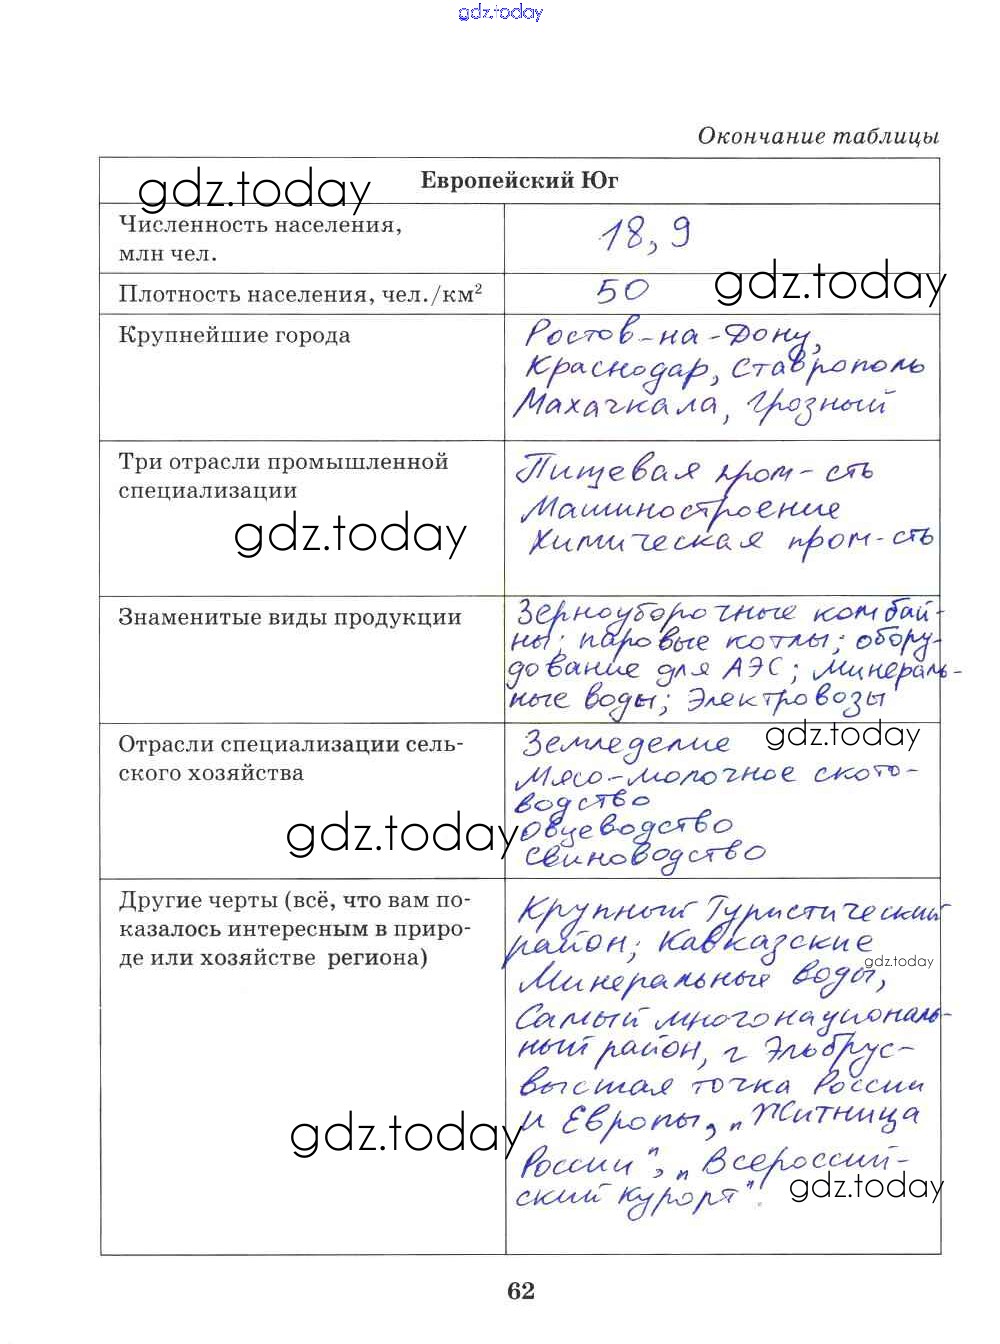 gdz.today
Окончание таблицы
gdz.today
Европейский Юг
Численность населения,
млн чел.
18,9
gdz.today
Плотность населения, чел./км²
50
Крупнейшие города
Ростов-на-Дону,
Краснодар, Ставрополь
Махачкала, Грозный
Три отрасли промышленной
специализации
Пищевая пром-сть
Машиностроение
Химическая пром-сть
gdz.today
Знаменитые виды продукции
Зерноуборочные комбай-
ны; паровые котлы; обору-
дование для АЭС; Минераль-
ные воды; Электровозы
gdz.today
Отрасли специализации сель-
ского хозяйства
Земледелие
Мясо-молочное ското-
водство
Овцеводство
Свиноводство
gdz.today
Другие черты (всё, что вам по-
казалось интересным в приро-
де или хозяйстве региона)
Крупный Туристический
район; Кавказские
gdz.today
Минеральные воды,
Самый многонациональ-
ный район, г Эльбрус-
высшая точка России
и Европы, „Житница
России", „Всероссий-
ский курорт".
gdz.today
gdz.today
62